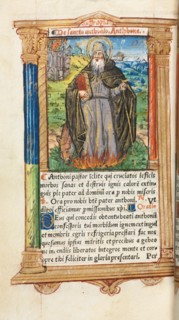 De sancto anthonio Antiphona.
Anthoni pastor inclite qui cruciatos reficis
morbos sanas et destruis ignis calorem extin
guis pie pater ad dominum ora pro nobis miseris
Ora pro nobis beate pater anthoni. Ut
digni efficiamur promissionibus Oratio
Deus qui concedis obtentu beati anthonii
confessoris tui morbidum ignem extingui
et membris egris refrigeria prestari fac nos
ipsius meritis et precibus a gehen
ne incendiis liberatos integros mente et corpo
re tibi feliciter in gloria presentari. Per